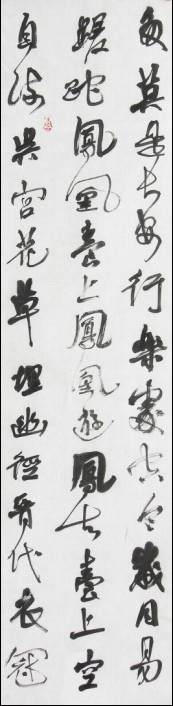 多莫是长安行樂處空令歲月易
蹉跎鳳凰臺上鳳凰遊鳳去臺上空
自流吳宮花草埋幽徑晉代衣冠